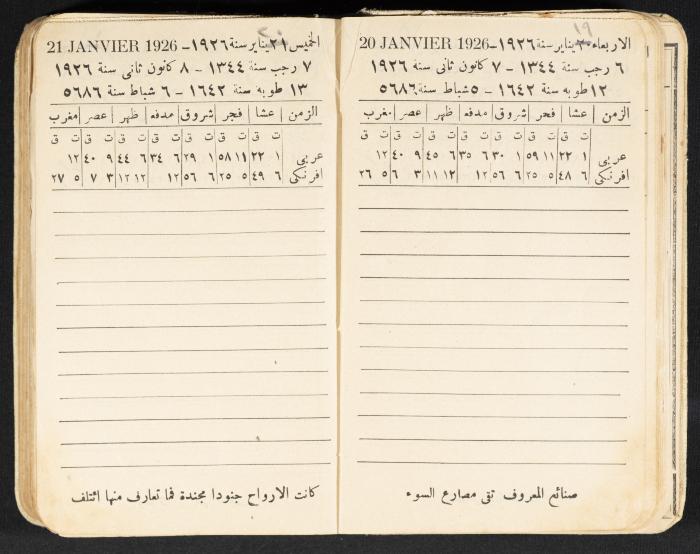 الاربعاء ٢٠ يناير سنة ١٩٢٦ – 20 JANVIER 1926
١٩
٦ رجب سنة ١٣٤٤ – ٧ كانون ثانى سنة ١٩٢٦
١٢ طوبه سنة ١٦٤٢ – ٥ شباط سنة ٥٦٨٦
الزمن عشا فجر شروق مدفه ظهر عصر مغرب
ت ق ت ق ت ق ت ق ت ق ت ق ت ق
عربى ١ ٢٢ ١١ ٥٩ ١ ٣٠ ٦ ٣٥ ٦ ٤٥ ٩ ٤٠ ١٢
افرنكى ٦ ٤٨ ٥ ٢٥ ٦ ٥٦ ١٢ ١٢ ١١ ٣ ٦ ٥ ٢٦
صنائع المعروف تقى مصارع السوء
الخميس ٢١ يناير سنة ١٩٢٦ – 21 JANVIER 1926
٢٠
٧ رجب سنة ١٣٤٤ – ٨ كانون ثانى سنة ١٩٢٦
١٣ طوبه سنة ١٦٤٢ – ٦ شباط سنة ٥٦٨٦
الزمن عشا فجر شروق مدفه ظهر عصر مغرب
ت ق ت ق ت ق ت ق ت ق ت ق ت ق
عربى ١ ٢٢ ١١ ٥٨ ١ ٢٩ ٦ ٣٤ ٦ ٤٤ ٩ ٤٠ ١٢
افرنكى ٦ ٤٩ ٥ ٢٥ ٦ ٥٦ ١٢ ١٢ ١٢ ٣ ٧ ٥ ٢٧
كانت الارواح جنودا مجندة فما تعارف منها ائتلف